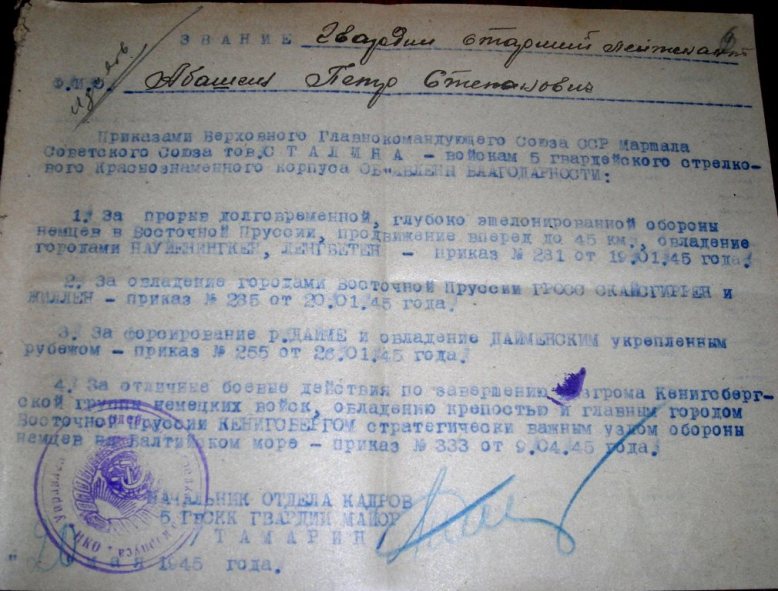 ЗВАНИЕ Гвардии старший лейтенант
Ф.И.О. Абашкин Петр Степанович
Приказами Верховного Главнокомандующего Союза ССР Маршала
Советского Союза тов. СТАЛИНА - войскам 5 гвардейского стрелко-
вого Краснознаменного корпуса ОБ"ЯВЛЕНЫ БЛАГОДАРНОСТИ:
1. За прорыв долговременной, глубоко эшелонированной обороны
немцев в Восточной Пруссии, продвижение вперед до 45 км., овладение
городами НАУЙЕНИНГКЕН, ЛЕНГВЕТЕН - приказ № 231 от 19.01.45 года.
2. За овладение городами Восточной Пруссии ГРОСС СКАЙСГИРРЕН и
ЖИЛЛЕН - приказ № 235 от 20.01.45 года.
3. За форсирование р. ДАЙМЕ и овладение ДАЙМЕНСКИМ укрепленным
рубежом - приказ № 255 от 26.01.45 года.
4. За отличные боевые действия по завершению разгрома Кенигсберг-
ской группы немецких войск, овладению крепостью и главным городом
Восточной Пруссии КЕНИГСБЕРГОМ стратегически важным узлом обороны
немцев на Балтийском море - приказ № 333 от 9.04.45 года.
НАЧАЛЬНИК ОТДЕЛА КАДРОВ
5 ГвСКК ГВАРДИИ МАЙОР
/ТАМАРИН/
"20" мая 1945 года.
НКО